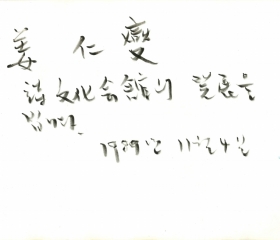 姜 仁 燮
文化会館의 発展을
빕니다.
1989년 11월 4일